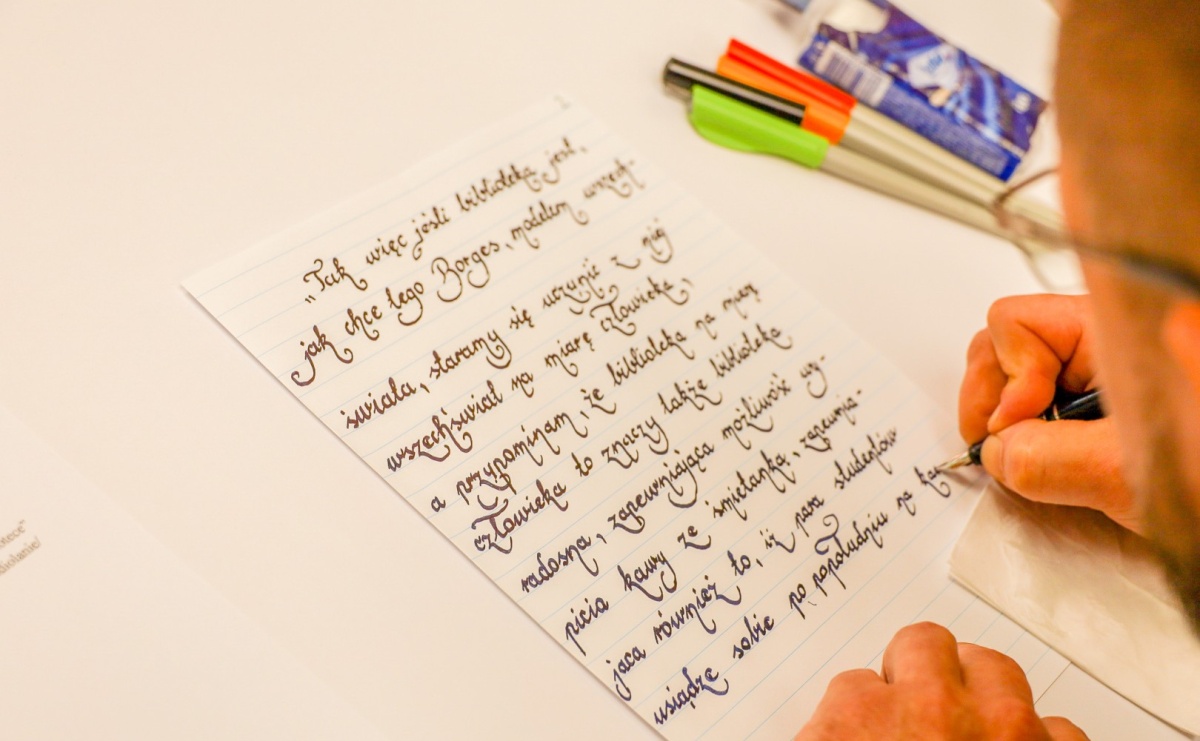 „Tak więc jeśli biblioteka jest,
jak chce tego Borges, modelem wszech-
świata, staramy się uczynić z niej
wszechświat na miarę człowieka,
a przypominam, że biblioteka na miarę
człowieka to znaczy także biblioteka
radosna, zapewniająca możliwość wy-
picia kawy ze śmietanką, zapewnia-
jąca również to, iż para studentów
usiądzie sobie po popołudniu na kan
otece"
diolanie/